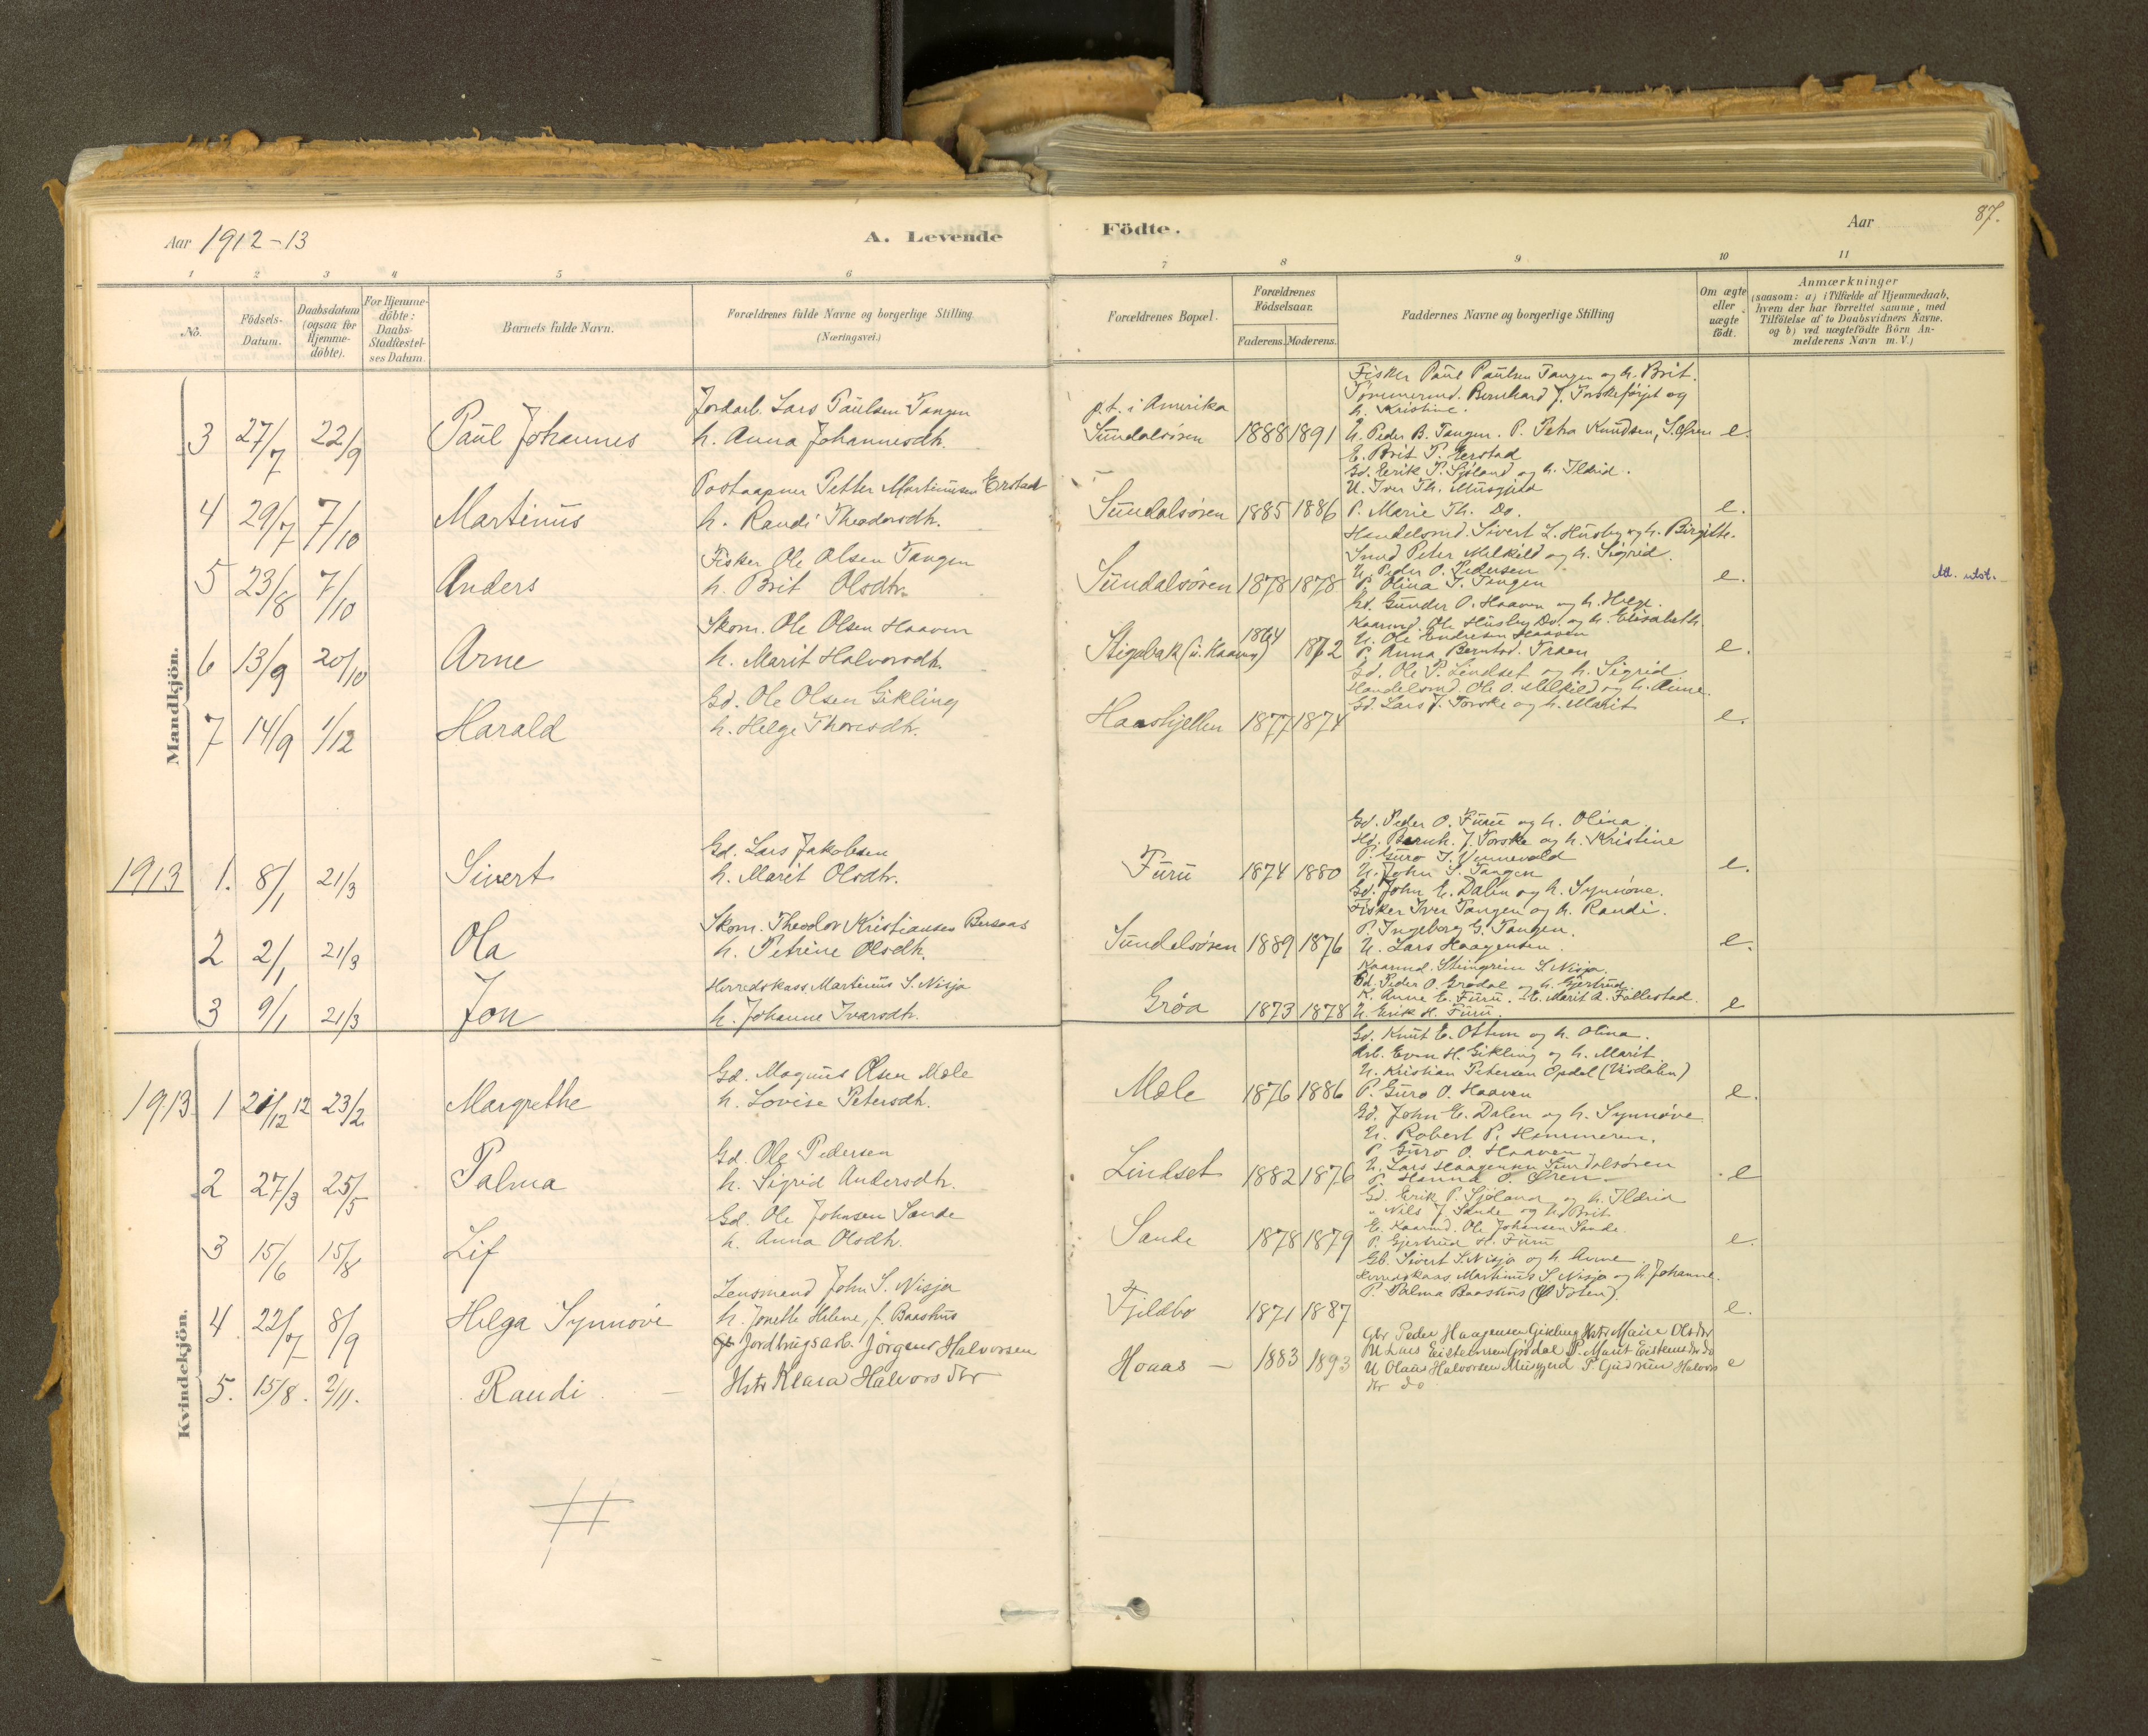 Aar 1912-13
A. Levende
Födte.
Aar
87.
1 2 3 4 5 6 7 8 9 10 11
No.
Födsels-Datum.
Daabsdatum (ogsaa for Hjemme-döbte).
For Hjemme-döbte: Daabs-Stadfæstel-ses Datum.
Barnets fulde Navn.
Forældrenes fulde Navne og borgerlige Stilling
(Næringsvei.)
Forældrenes Bopæl.
Forældrenes Födselsaar.
Faderens. Moderens.
Faddernes Navne og borgerlige Stilling
Om ægte eller uægte födt.
Anmærkninger
(saasom: a) i Tilfælde af Hjemmedaab,
hvem der har forrettet samme, med
Tilföielse af to Daabsvidners Navne.
og b) ved uægtefödte Börn An-
melderens Navn m. V.)
Mandkjön.
3 27/7 22/9 Paul Johannes
Jordarb. Lars Paulsen Tangen
h. Anna Johannesdtr.
p.t. i Amerika
Sundalsören 1888 1891
Fisker Paul Paulsen Tangen og h. Brit.
Tömmermd. Bernhard J.
h. Kristine.
U. Peder B. Tangen. P. Petra Knudsen, S.ören e.
4 29/7 7/10 Martinus
Postaapner Petter Martinusen Erstad
h. Randi Theodorsdtr.
Sundalsören 1885 1886
E. Brit P. Erstad
Gd. Eerik P. Sjöland og h. Ildrid.
U. Iver Th. Musgjerd
P. Marie Th. Do. e.
5 23/8 7/10 Anders
Fisker Ole Olsen Tangen
h. Brit Olsdtr.
Sundalsören 1878 1878
Handelsmd. Sivert L. Husby og h. Birgitte.
Smed Peter Melkild og h. Sigrid.
U. Peder O. Pedersen
P. Olina J. Tangen e.
Att. utst.
6 13/9 20/10 Arne
Skom. Ole Olsen Haaven
h. Marit Halvorsdtr.
1864 1872
Gd. Gunder O. Haaven og h. Helge.
Kaarmd. Ole Husby Do. og h. Elisabeth.
U. Ole Endresen Haaven
P. Anna Berntsd. Traen e.
7 14/9 1/12 Harald
Gd. Ole Olsen Gikling
h. Helge Thoresdtr.
Haashjellen 1877 1874
Gd. Ole P. Lindset og h. Sigrid
Handelsmd. Ole O. Melkild og h. Anne.
Gd. Lars J. Torske og h. Marit e.
1913 1. 8/1 21/3 Sivert
Gd. Lars Jakobsen
h. Marit Olsdtr.
Furu 1874 1880
Gd. Peder O. Furu og h. Olina.
Hd. Bernh. J. Torske og h. Kristine
P. Guro J. Vennevold
U. John S. Tangen e.
2 2/1 21/3 Ola
Skom. Theodor Kristiansen Bersaas
h. Petrine Olsdtr.
Sundalsören 1889 1876
Gd. John E. Dalen og h. Synnöve.
Fisker Iver Tangen og h. Randi.
P. Ingeborg G. Tangen.
U. Lars Haagensen. e.
3 9/1 21/3 Jon
Herredskass. Martinus S. Nisja
h. Johanne Ivarsdtr.
Gröa 1873 1878
Kaarmd. Steingrim S. Nisja.
Gd. Peder O. Grödal og h. Gjertrud.
K. Anne E. Furu. E. Marit A. Follestad.
U. Erik H. Furu. e
Kvindekjön.
1913 1 21/12 12 23/2 Margrethe
Gd. Magnus Olsen Mæle
h. Lovise Petersdtr.
Mæle 1876 1886
Gd. Knut E. Ottem og h. Olina.
Arb. Even H. Gikling og h. Marit.
U. Kristian Petersen Opdal (Visdalen)
P. Guro O. Haaven e.
2 27/3 25/5 Palma
Gd. Ole Pedersen
h. Sigrid Andersdtr.
Lindset 1882 1876
Gd. John E. Dalen og h. Synnöve
U. Robert P. Hammeren.
P. Guro O. Haaven
U. Lars Haagensen Sundalsören
P. Hanna O. Ören e
3 15/6 15/8 Lif
Gd. Ole Johnsen Sande
h. Anna Olsdtr.
Sande 1878 1879
Gd. Erik P. Sjöland og h. Ildrid
" Nils J. Sande og h. Brit
E. Kaarmd. Ole Johansen Sande.
P. Gjertrud H. Furu e.
4 22/7 8/9 Helga Synnöve
Lensmand John S. Nisja
h. Jonette Helene, f. Baashus
Fjeldbo 1871 1887
Gb. Sivert S. Nisja og h. Anne
Herredskass. Martinus S. Nisja og h. Johanne.
P. Palma Baashus (Ö Toten). e.
5. 15/8. 2/11. Randi
Jordbrugsarb. Jörgen Halvorsen
Hstr Klara Halvorsdtr
Hoaas – 1883 1893
Gbr Peder Haagensen Gikling Hstr Marie Olsdtr
U Lars Eistensen Grödal P. Marit Eistensdtr do
U Olaus Halvorsen Musgjerd P. Gudrun Halvors e
dtr do